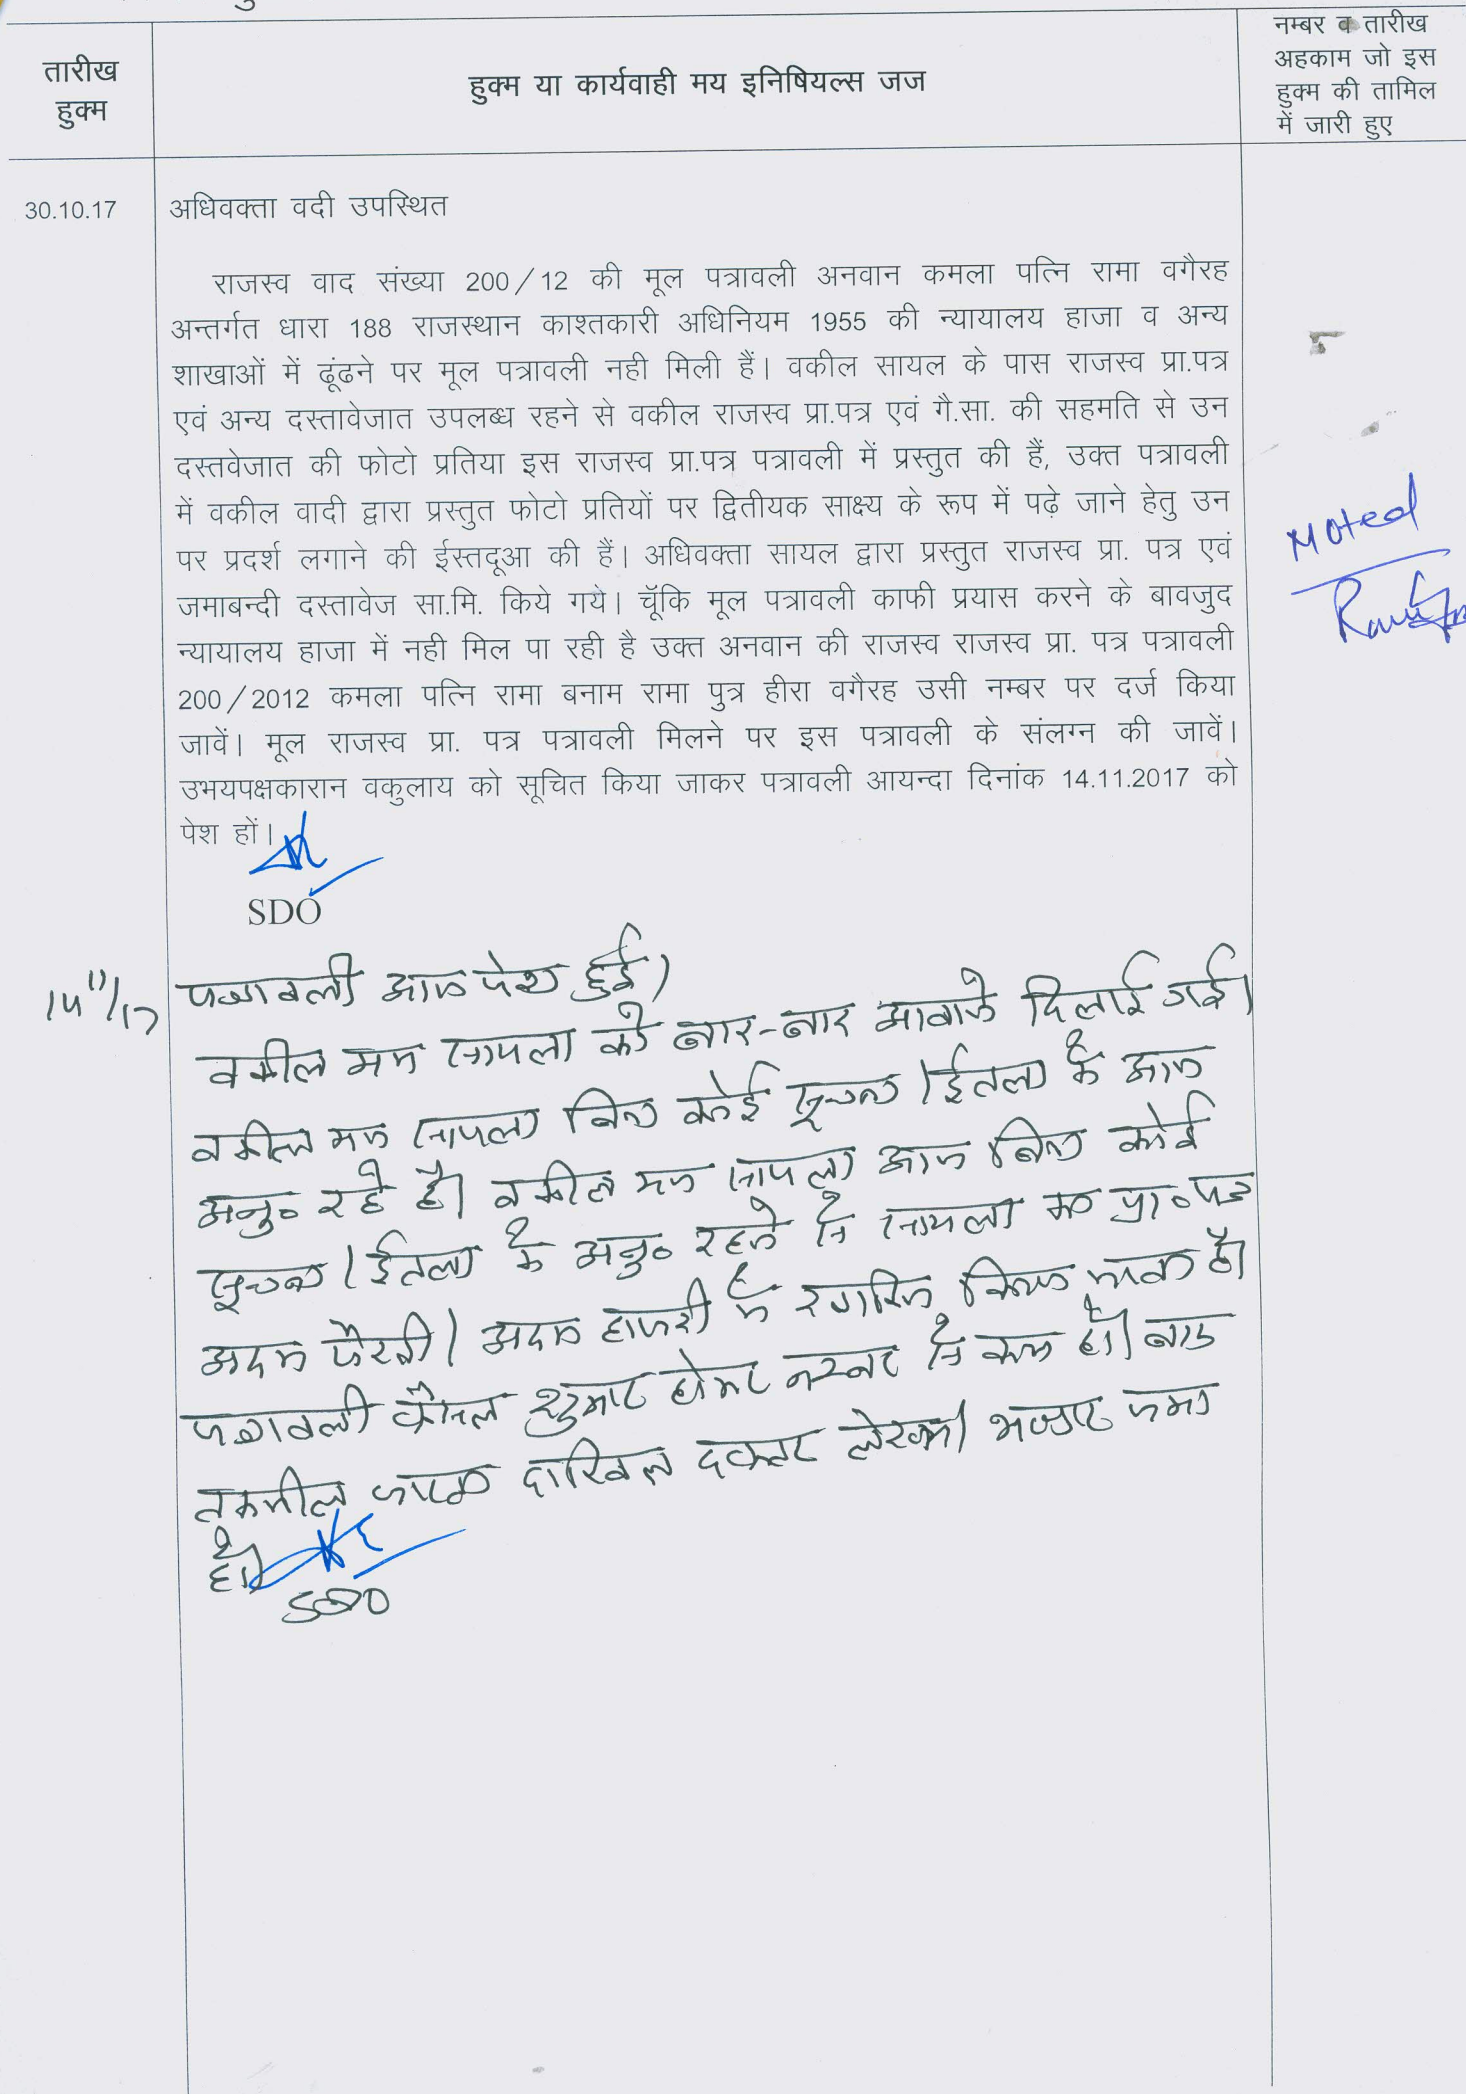 तारीख
हुक्म
हुक्म या कार्यवाही मय इनिषियल्स जज
नम्बर व तारीख
अहकाम जो इस
हुक्म की तामिल
में जारी हुए
30.10.17
अधिवक्ता वदी उपस्थित
राजस्व वाद संख्या 200/12 की मूल पत्रावली अनवान कमला पत्नि रामा वगैरह
अन्तर्गत धारा 188 राजस्थान काश्तकारी अधिनियम 1955 की न्यायालय हाजा व अन्य
शाखाओं में ढूंढने पर मूल पत्रावली नही मिली हैं। वकील सायल के पास राजस्व प्रा.पत्र
एवं अन्य दस्तावेजात उपलब्ध रहने से वकील राजस्व प्रा.पत्र एवं गै.सा. की सहमति से उन
दस्तवेजात की फोटो प्रतिया इस राजस्व प्रा.पत्र पत्रावली में प्रस्तुत की हैं, उक्त पत्रावली
में वकील वादी द्वारा प्रस्तुत फोटो प्रतियों पर द्वितीयक साक्ष्य के रूप में पढ़े जाने हेतु उन
पर प्रदर्श लगाने की ईस्तदूआ की हैं। अधिवक्ता सायल द्वारा प्रस्तुत राजस्व प्रा. पत्र एवं
जमाबन्दी दस्तावेज सा.मि. किये गये। चूॅकि मूल पत्रावली काफी प्रयास करने के बावजुद
न्यायालय हाजा में नही मिल पा रही है उक्त अनवान की राजस्व राजस्व प्रा. पत्र पत्रावली
200/2012 कमला पत्नि रामा बनाम रामा पुत्र हीरा वगैरह उसी नम्बर पर दर्ज किया
जावें। मूल राजस्व प्रा. पत्र पत्रावली मिलने पर इस पत्रावली के संलग्न की जावें।
उभयपक्षकारान वकुलाय को सूचित किया जाकर पत्रावली आयन्दा दिनांक 14.11.2017 को
पेश हों।
SDO
Noted
14/11/17
पत्रावली आज पेश हुई।
वकील मन सायला को बार-बार आवाजे दिलाई गई।
वकील मन सायला बिना कोई सूचना/ईतला के आज
अनु० रहे है। वकील मन सायला आज बिना कोई
सूचना/ईतला के अनु० रहने से सायला का प्रा०पत्र
अदम पैरवी/अदम हाजरी में खारिज किया जाता है।
पत्रावली फैसल शुमार होकर नम्बर से कम हो। बाद
तकमील जाब्ता दाखिल दफ्तर लेखा भण्डार जमा
हो।
SDO